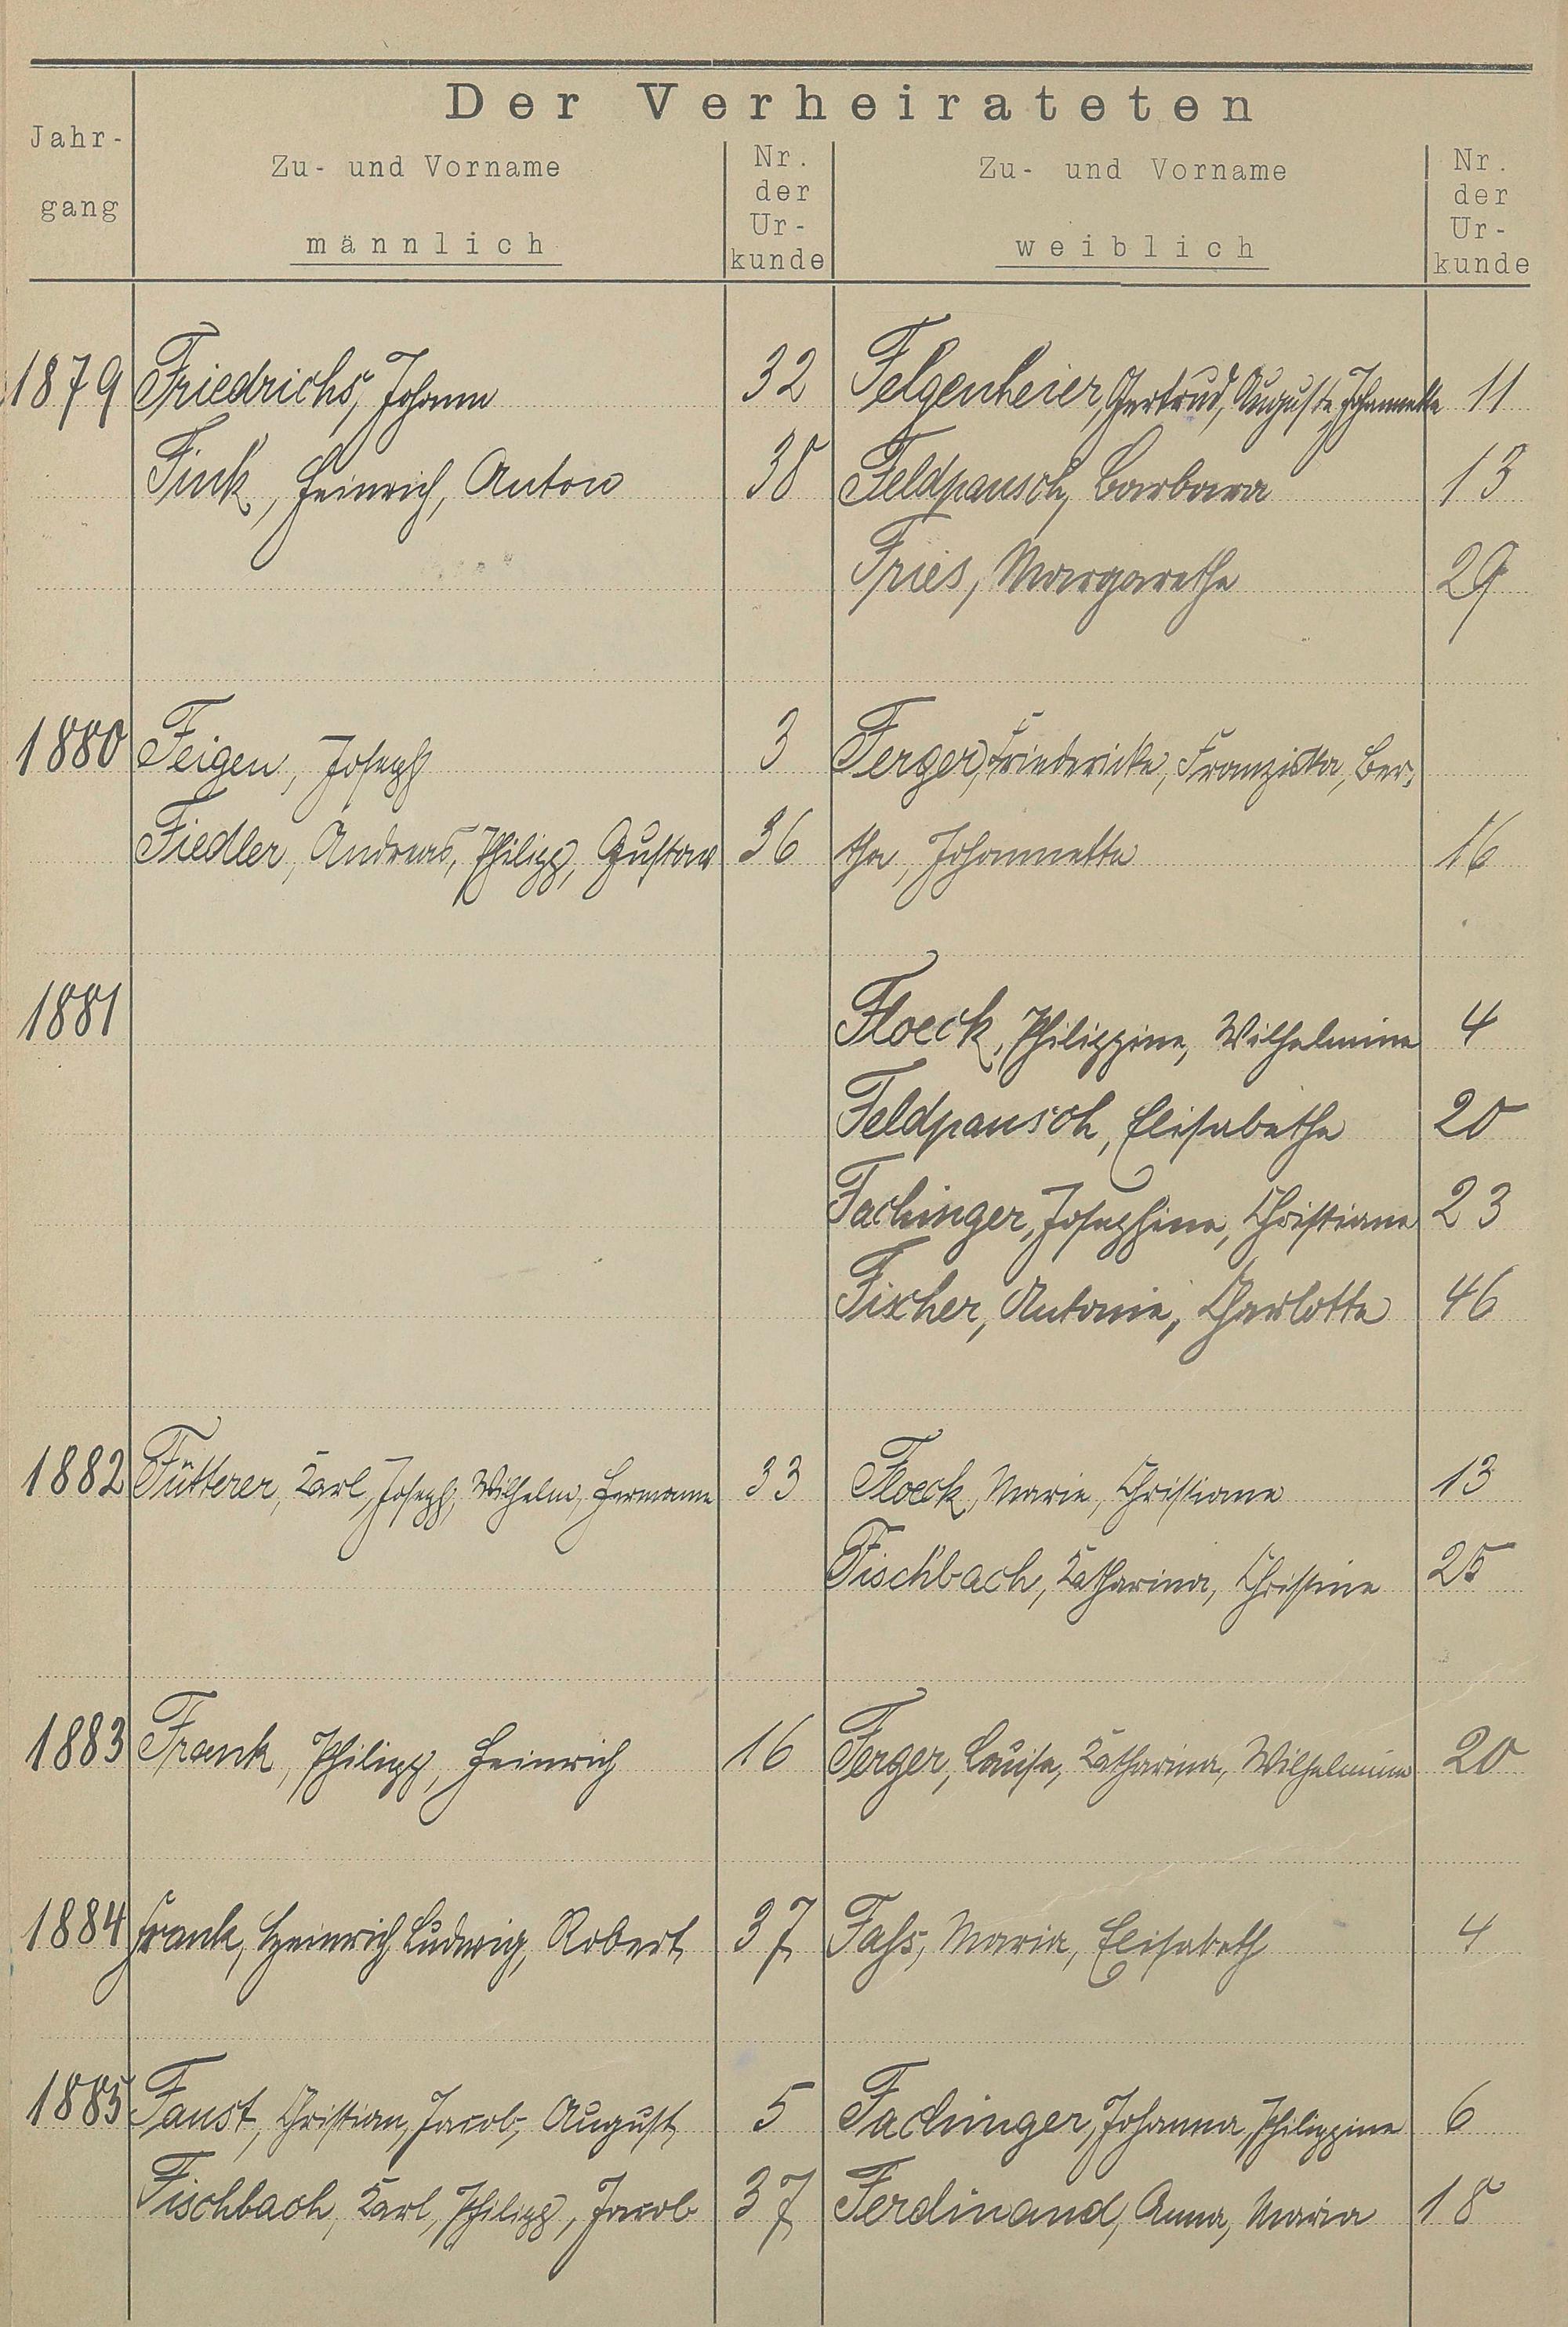 Der Verheirateten
Jahr-
gang
Zu- und Vorname
männlich
Nr.
der
Ur-
kunde
Zu- und Vorname
weiblich
Nr.
der
Ur-
kunde
1879 Friedrichs, Johann 32 Felgenheier, Gertrud, Auguste, Johannette 11
Fink, Heinrich, Anton 38 Feldpausch, Barbara 13
Fries, Margarethe 29
1880 Feigen, Joseph 3 Ferger, Friedericke, Franziska, Ber-
Fiedler, Andreas, Philipp, Gustav 36 tha, Johannette 16
1881 Floeck, Philippine, Wilhelmine 4
Feldpausch, Elisabethe 20
Fachinger, Josephine, Christiane 23
Fischer, Antonie, Charlotte 46
1882 Fütterer, Karl, Joseph, Wilhelm, Hermann 33 Floeck, Marie, Christiane 13
Fischbach, Katharina, Christine 25
1883 Frank, Philipp, Heinrich 16 Ferger, Louise, Katharina, Wilhelmine 20
1884 Frank, Heinrich Ludwig, Robert 37 Fahs, Maria, Elisabeth 4
1885 Faust, Christian, Jacob, August 5 Fachinger, Johanna, Philippine 6
Fischbach, Karl, Philipp, Jacob 37 Ferdinand, Anna, Maria 18